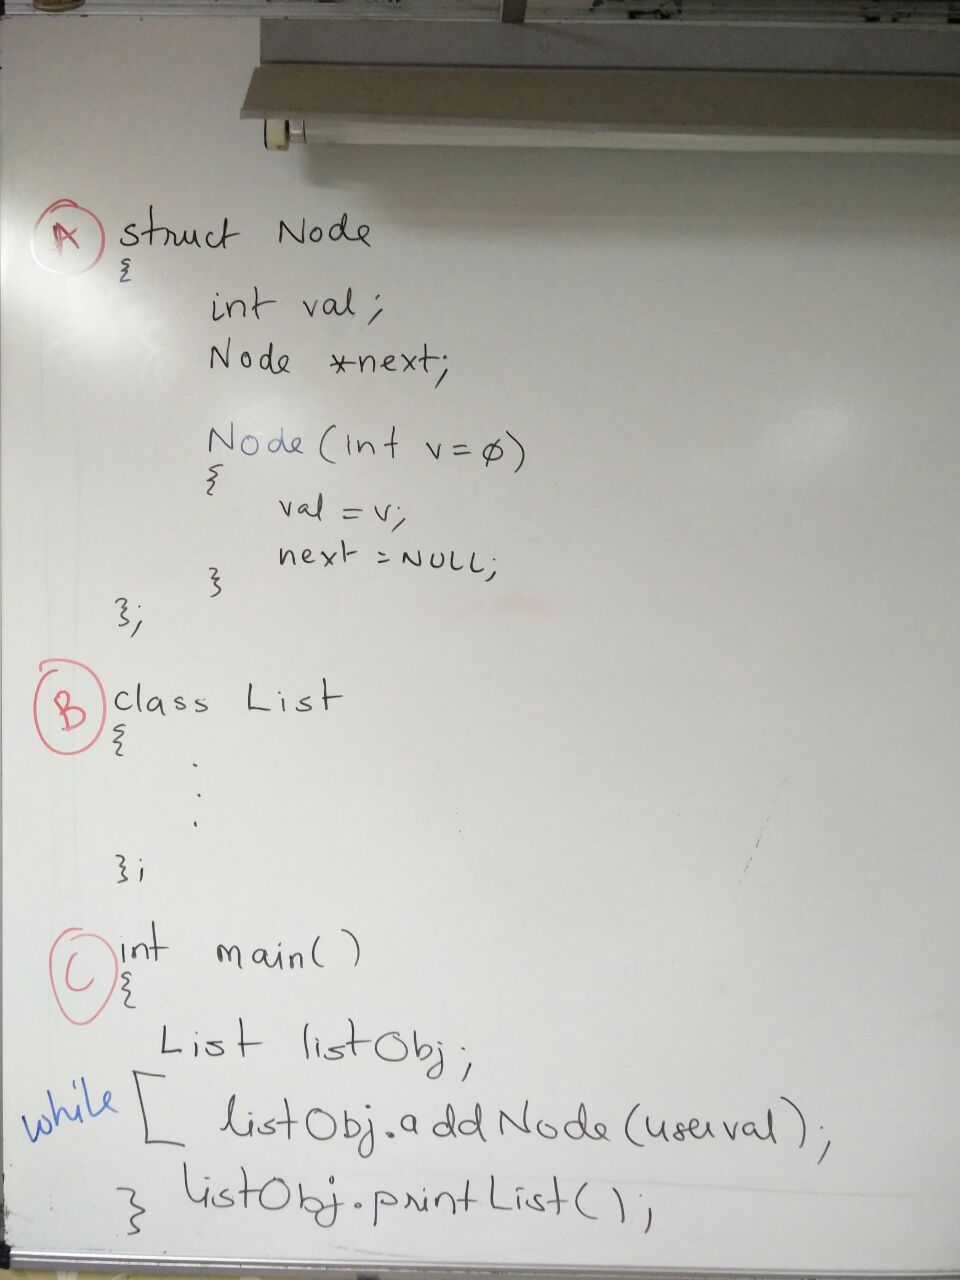 A struct Node
{
int val;
Node *next;
Node(int v=ø)
{
val = v;
next = NULL;
}
};
B class List
{
.
.
.
};
C int main()
{
List listObj;
while [ listObj.addNode(userval);
listObj.printList();
}